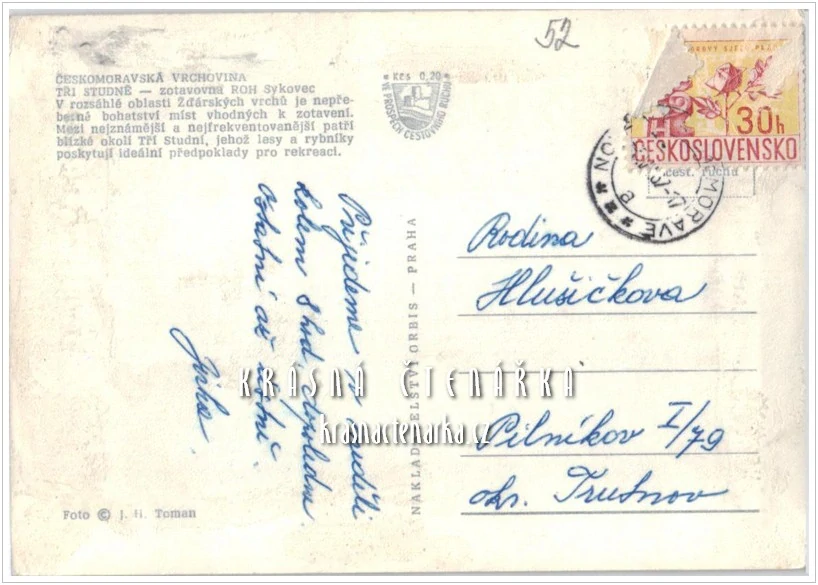 52
ČESKOMORAVSKÁ VRCHOVINA
TŘI STUDNĚ — zotavovna ROH Sykovec
V rozsáhlé oblasti Žďárských vrchů je nepře-
berné bohatství míst vhodných k zotavení.
Mezi nejznámější a nejfrekventovanější patří
blízké okolí Tří Studní, jehož lesy a rybníky
poskytují ideální předpoklady pro rekreaci.
Kčs 0,20
VE PROSPĚCH CESTOVNÍHO RUCHU
30h
ČESKOSLOVENSKO
MORAVĚ
a
cest. ruchu
Přijedeme v neděli
kolem 8 hod. dopoledne
Ostatní až ústně
Jirka.
NAKLADATELSTVÍ ORBIS — PRAHA
Rodina
Hlušičkova
Pilníkov I/79
okr. Trutnov
Foto © J. H. Toman
KRÁSNÁ ČTENÁŘKA
krasnactenarka.cz